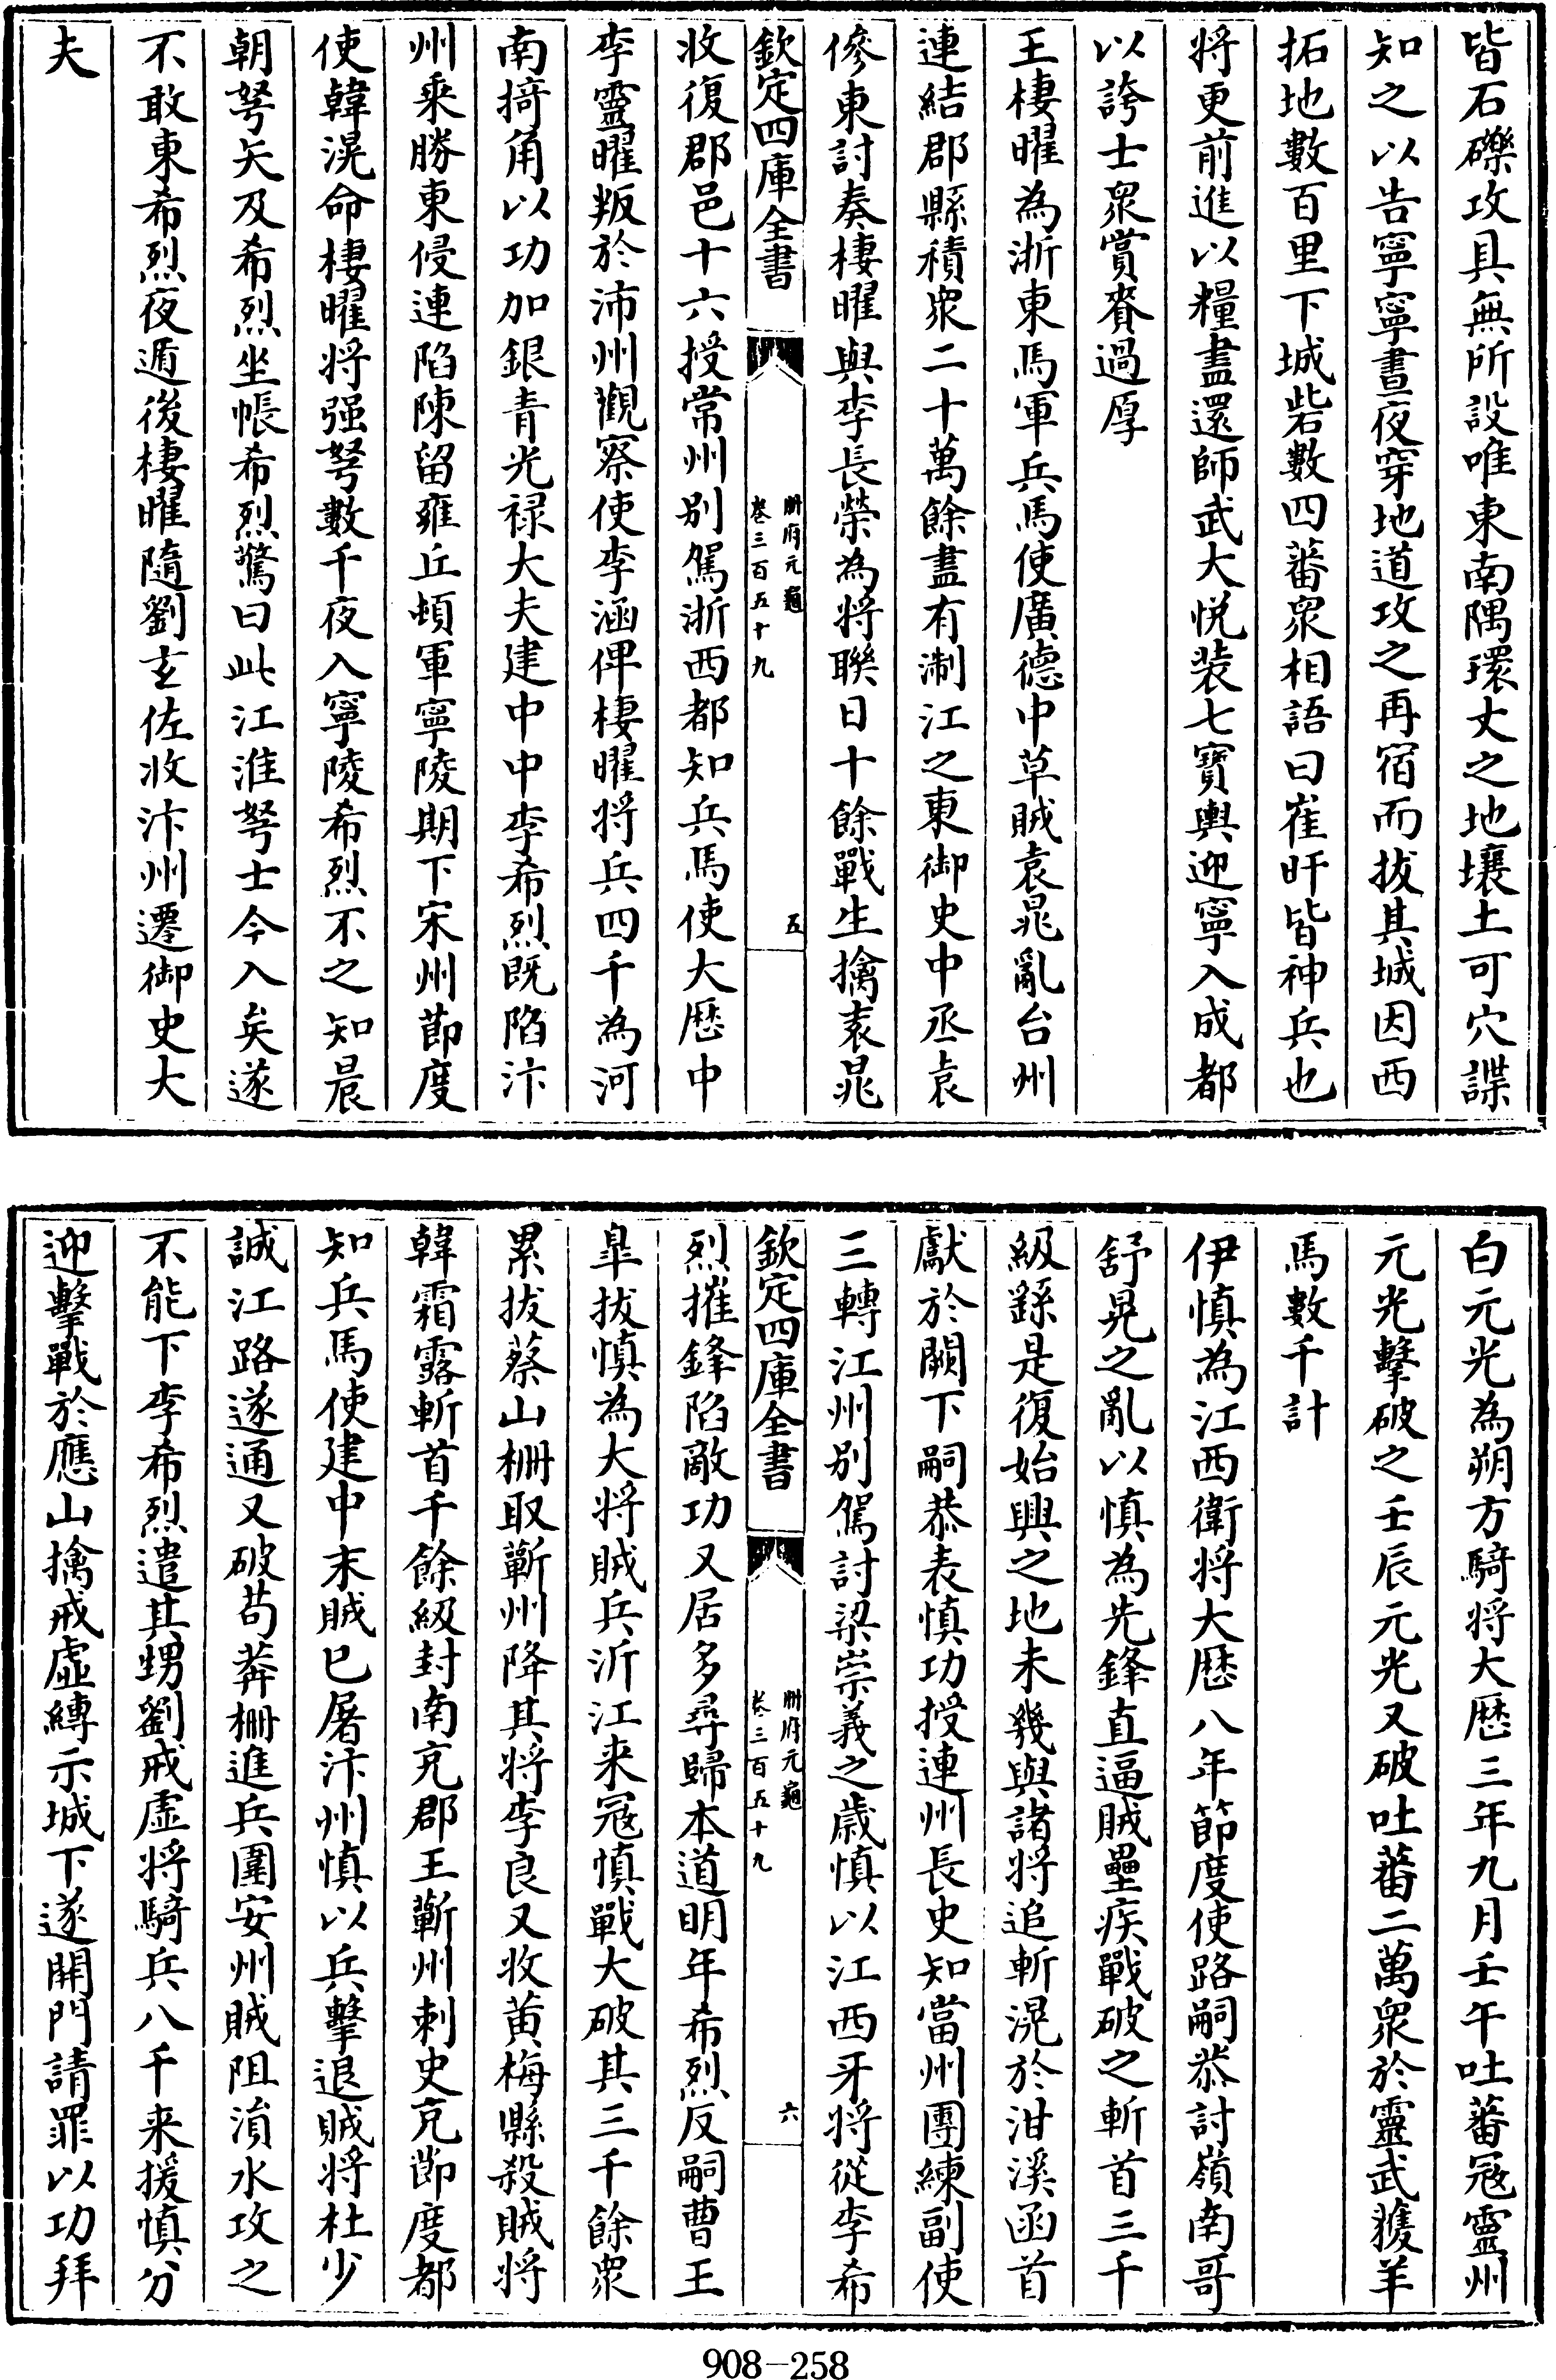 皆石礫攻具無所設唯東南隅環丈之地壤土可穴諜
知之以告寧寧晝夜穿地道攻之再宿而拔其城因西
拓地數百里下城砦數四蕃衆相語曰崔旰皆神兵也
将更前進以糧盡還師武大悦装七寶輿迎寧入成都
以誇士衆賞賚過厚
王棲曜為浙東馬軍兵馬使廣徳中草賊袁晁亂台州
連結郡縣積衆二十萬餘盡有淛江之東御史中丞袁
傪東討奏棲曜與李長榮為将聨日十餘戰生擒袁晁
欽定四庫全書
冊府元龜
卷三百五十九
五
收復郡邑十六授常州别駕浙西都知兵馬使大厯中
李靈曜叛於沛州觀察使李涵俾棲曜将兵四千為河
南掎角以功加銀青光禄大夫建中中李希烈既陷汴
州乘勝東侵連陷陳留雍丘頓軍寧陵期下宋州節度
使韓滉命棲曜将强弩數千夜入寧陵希烈不之知晨
朝弩矢及希烈坐帳希烈驚曰此江淮弩士今入矣遂
不敢東希烈夜遁後棲曜隨劉玄佐收汴州遷御史大
夫
白元光為朔方騎将大厯三年九月壬午吐蕃冦靈州
元光擊破之壬辰元光又破吐蕃二萬衆於靈武獲羊
馬數千計
伊慎為江西衛将大厯八年節度使路嗣恭討嶺南哥
舒晃之亂以慎為先鋒直逼賊壘疾戰破之斬首三千
級繇是復始興之地未幾與諸将追斬滉於泔溪函首
獻於闕下嗣恭表慎功授連州長史知當州團練副使
三轉江州别駕討梁崇義之歳慎以江西牙将從李希
欽定四庫全書
冊府元龜
卷三百五十九
六
烈摧鋒陷敵功又居多尋歸本道明年希烈反嗣曹王
臯拔慎為大将賊兵泝江来冦慎戰大破其三千餘衆
累拔蔡山栅取蘄州降其将李良又收黄梅縣殺賊将
韓霜露斬首千餘級封南充郡王蘄州刺史充節度都
知兵馬使建中末賊已屠汴州慎以兵擊退賊将杜少
誠江路遂通又破苟莽栅進兵圍安州賊阻溳水攻之
不能下李希烈遣其甥劉戒虚将騎兵八千来援慎分
迎擊戰於應山擒戒虚縛示城下遂開門請罪以功拜
908-258